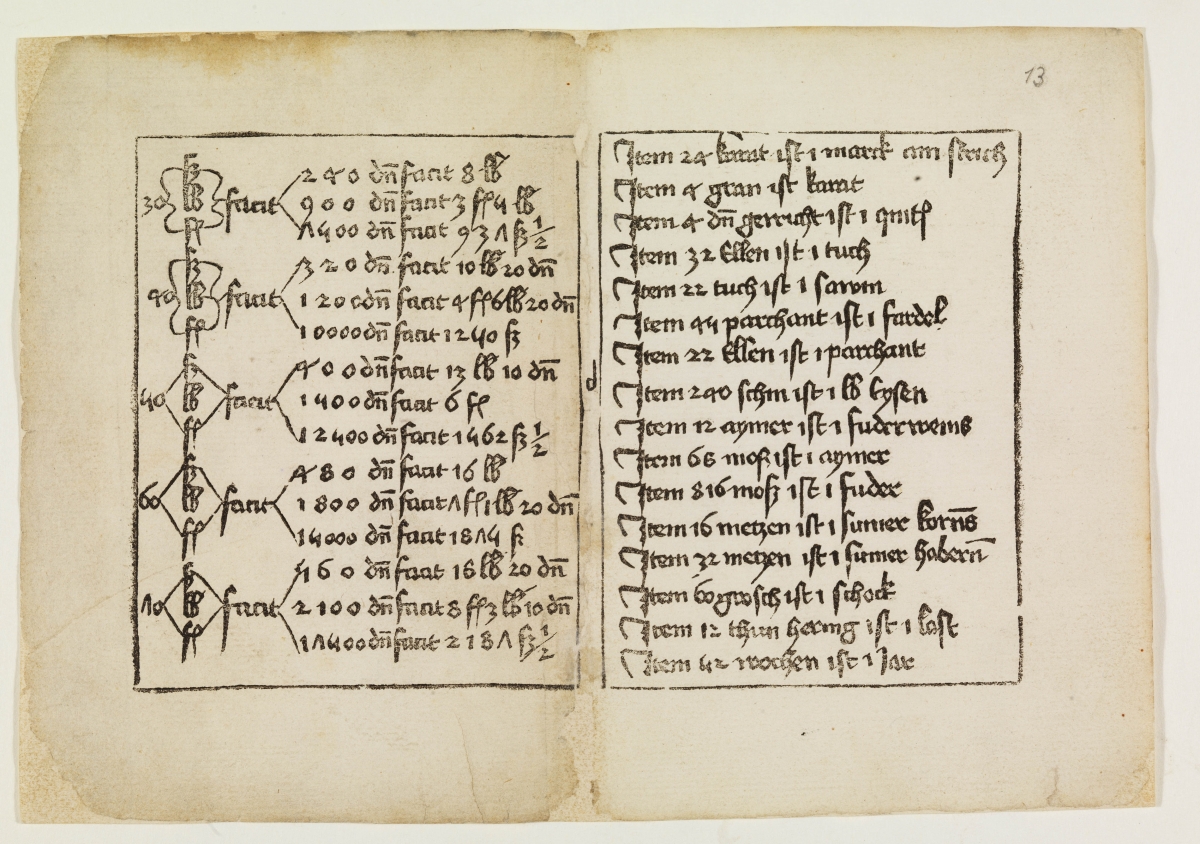 13
30 ß lb fl facit
240 dn̄ facit 8 lb
900 dn̄ facit 3 fl 5 lb
7500 dn̄ facit 937 ß 1/2
40 ß lb fl facit
320 dn̄ facit 10 lb 20 dn̄
1200 dn̄ facit 4 fl 6 lb 20 dn̄
10000 dn̄ facit 1250 ß
50 ß lb fl facit
400 dn̄ facit 13 lb 10 dn̄
1500 dn̄ facit 6 fl
12500 dn̄ facit 1562 ß 1/2
60 ß lb fl facit
480 dn̄ facit 16 lb
1800 dn̄ facit 7 fl 1 lb 20 dn̄
15000 dn̄ facit 1875 ß
70 ß lb fl facit
560 dn̄ facit 18 lb 20 dn̄
2100 dn̄ facit 8 fl 3 lb 10 dn̄
17500 dn̄ facit 2187 ß 1/2
d
Item 24 karat ist 1 marck am strich
Item 4 gran ist karat
Item 4 dn̄ gewicht ist 1 quitl
Item 32 Ellen ist 1 tuch
Item 22 tuch ist 1 sawm
Item 45 parchant ist 1 fardel
Item 22 Ellen ist 1 parchant
Item 240 schin ist 1 lb Eysen
Item 12 aymer ist 1 fuder weins
Item 68 moß ist 1 aymer
Item 816 moß ist 1 fuder
Item 16 metzen ist 1 sumer korns̄
Item 32 metzen ist 1 sumer habern̄
Item 60 grosch ist 1 schock
Item 12 thun hering ist 1 last
Item 52 wochen ist 1 Jar